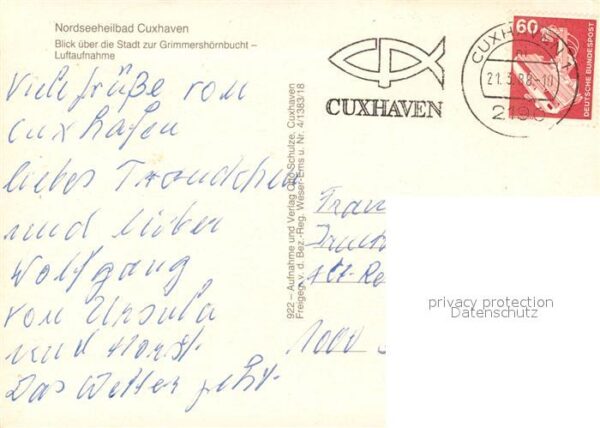 Nordseeheilbad Cuxhaven
Blick über die Stadt zur Grimmershörnbucht –
Luftaufnahme
Viele Grüße von
Cuxhafen
liebes Traudchen
und lieber
Wolfgang
von Ursula
und Horst.
Das Wetter geht.
922 – Aufnahme und Verlag Otto Schulze, Cuxhaven
Freigeg. v. d. Bez.-Reg. Weser-Ems u. Nr. 4/1383/18
CUXHAVEN
CUXHAVEN 1
21.3.88-10
2190
60
DEUTSCHE BUNDESPOST
1000
privacy protection
Datenschutz